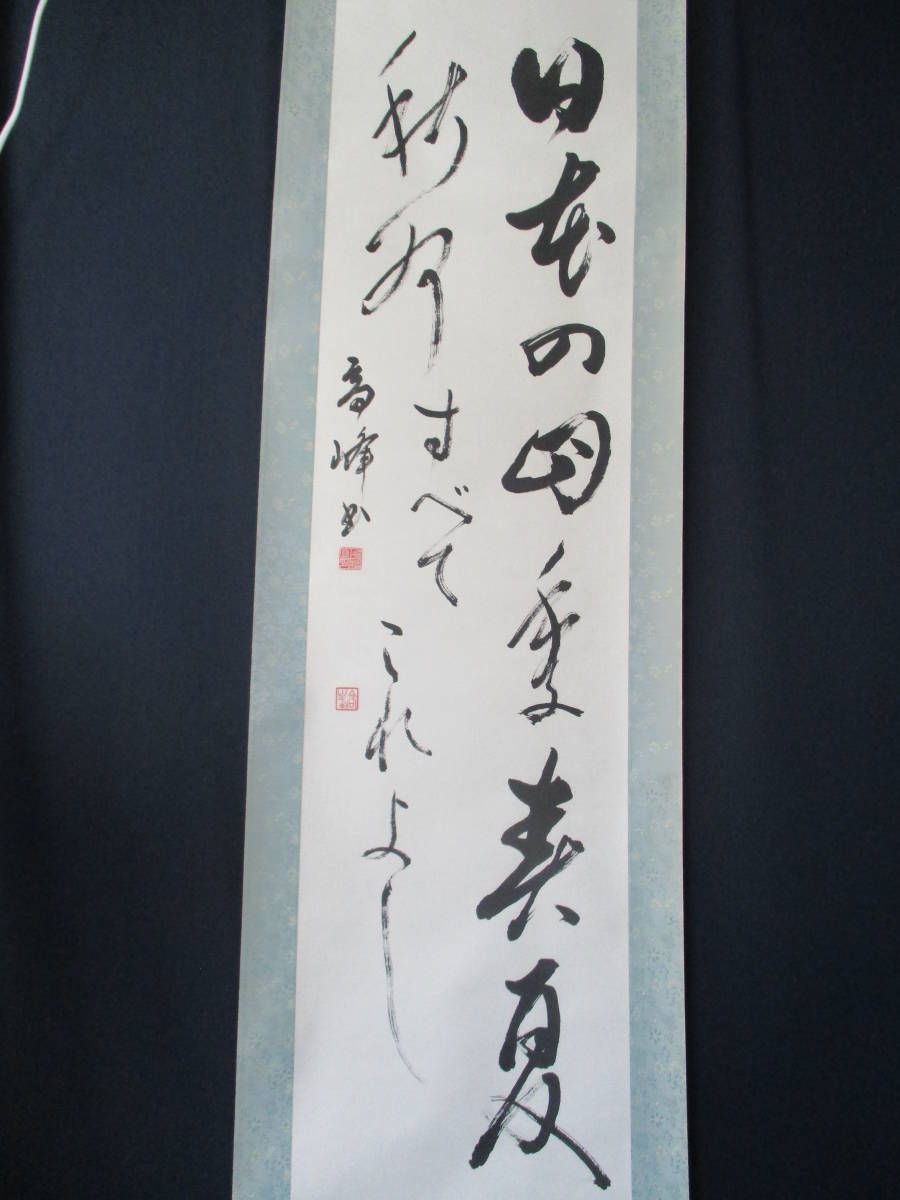 日本の四季春夏
秋冬すべてこれよし
高峰書